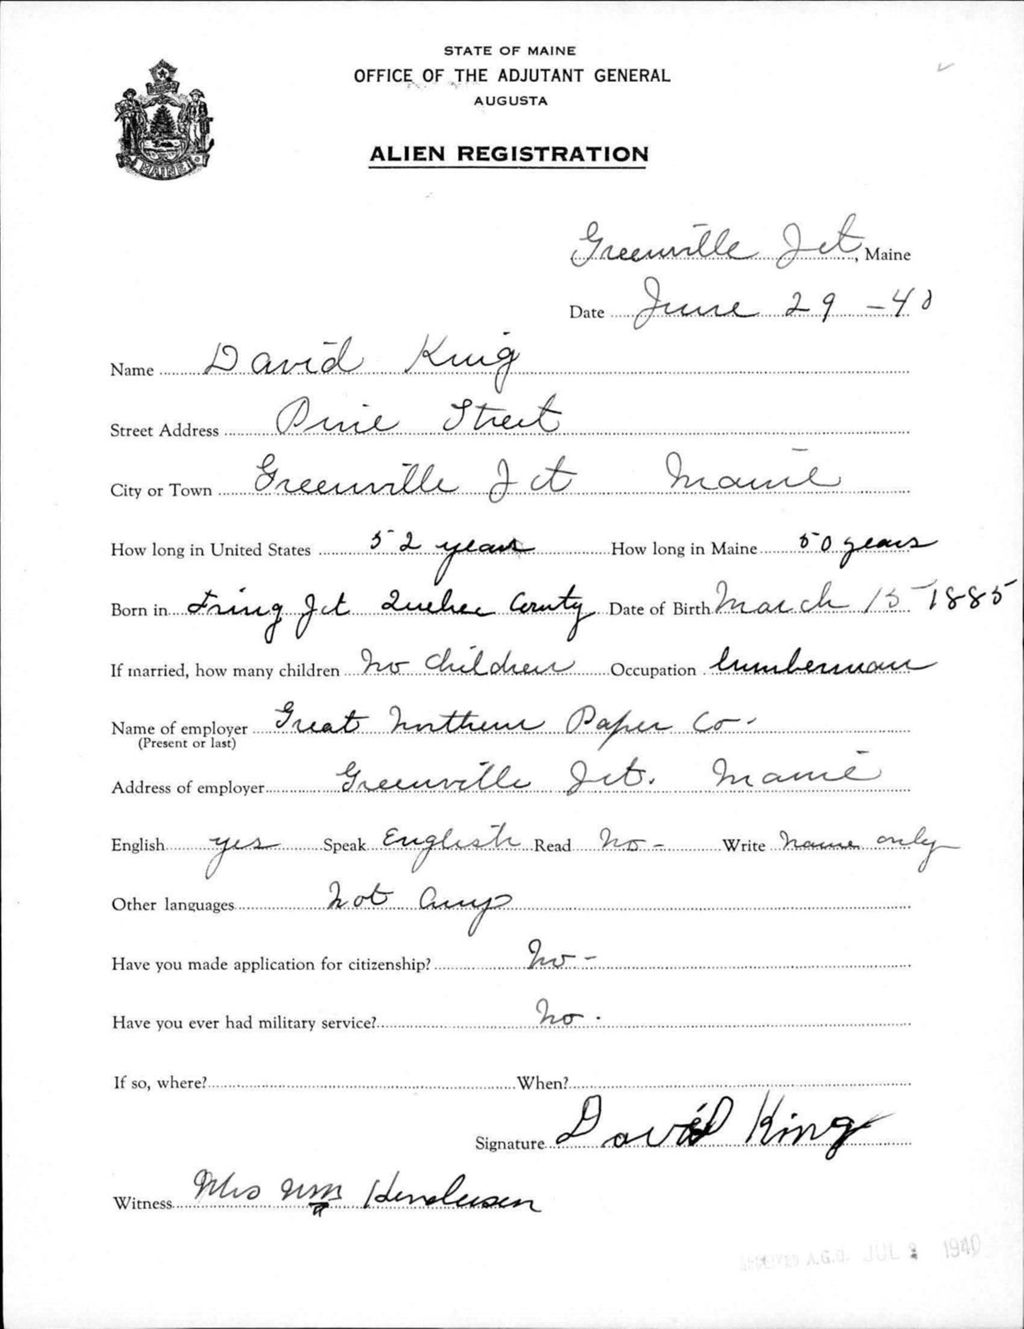 STATE OF MAINE
OFFICE OF THE ADJUTANT GENERAL
AUGUSTA
ALIEN REGISTRATION
MAINE
Greenville Jct, Maine
Date June 29-40
Name David King
Street Address Pine Street
City or Town Greenville Jct Maine
How long in United States 52 years How long in Maine 50 years
Born in Tring Jct Quebec County Date of Birth March 15-1885
If married, how many children No children Occupation lumberman
Name of employer Great Northern Paper Co-
(Present or last)
Address of employer Greenville Jct. Maine
English yes Speak English Read No- Write Name only
Other languages Not any
Have you made application for citizenship? No-
Have you ever had military service? No.
If so, where? When?
Signature David King
Witness Mrs Wm Henderson
A.G.O. JUL 2 1940